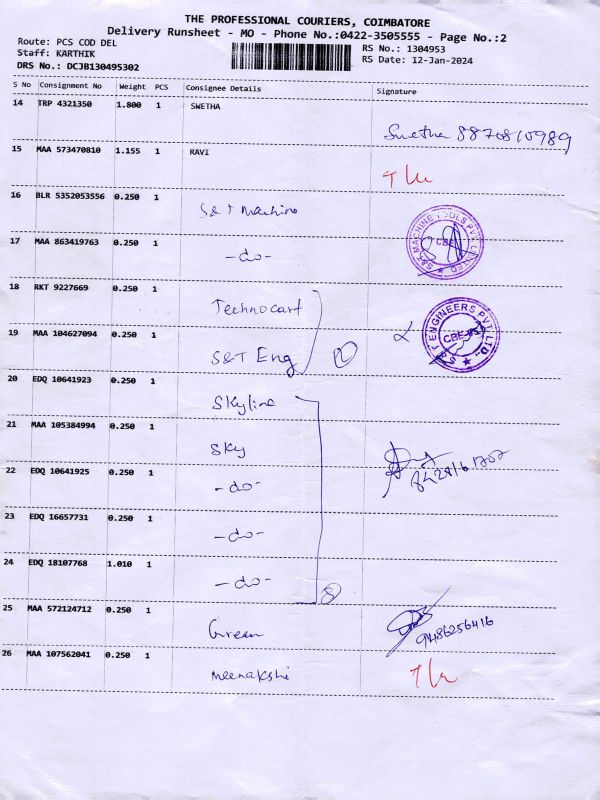 THE PROFESSIONAL COURIERS, COIMBATORE
Delivery Runsheet - MO - Phone No.:0422-3505555 - Page No.:2
Route: PCS COD DEL
RS No.: 1304953
Staff: KARTHIK
RS Date: 12-Jan-2024
DRS No.: DCJB130495302
S No Consignment No Weight PCS Consignee Details Signature
14 TRP 4321350 1.800 1 SWETHA
Swetha
15 MAA 573470810 1.155 1 RAVI
16 BLR 5352053556 0.250 1 S&T Machine
S&T MACHINE TOOLS PVT LIMITED
CBE
17 MAA 863419763 0.250 1 -do-
18 RKT 9227669 0.250 1 Technocart
S&T ENGINEERS PVT. LTD.
CBE
19 MAA 104627094 0.250 1 S&T Eng
20 EDQ 10641923 0.250 1 Skyline
21 MAA 105384994 0.250 1 Sky
22 EDQ 10641925 0.250 1 -do-
23 EDQ 16657731 0.250 1 -do-
24 EDQ 18107768 1.010 1 -do-
25 MAA 572124712 0.250 1 Green
9486256416
26 MAA 107562041 0.250 1 Meenakshi